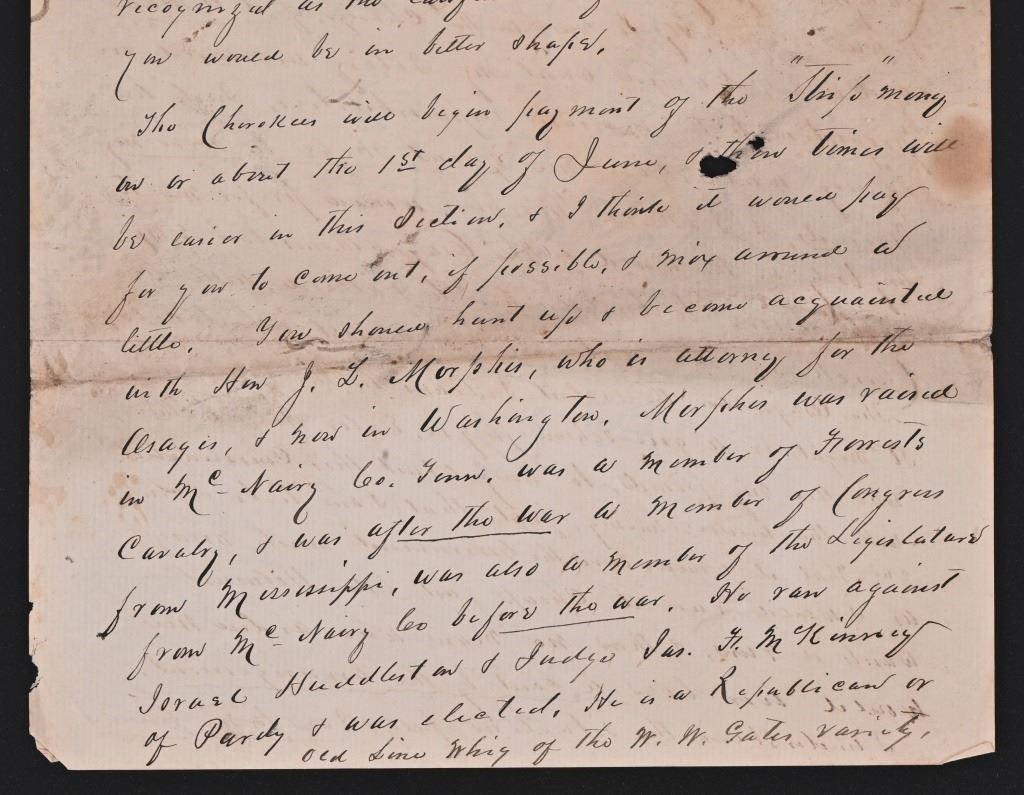 recognized as the
you would be in better shape.
The Cherokees will begin payment of the "Strip" money
on or about the 1st day of June, & then times will
be easier in this Section, & I think it would pay
for you to come out, if possible, & mix around a
little. You should hunt up & become acquainted
with Hon J. L. Morphis, who is attorney for the
Osages, & now in Washington. Morphis was raised
in Mc Nairy Co. Tenn. was a member of Forrests
Cavalry, & was after the war a member of Congress
from Mississippi, was also a member of the Legislature
from Mc Nairy Co before the war. He ran against
Israel Huddleston & Judge Jas. F. McKinney
of Purdy & was elected. He is a Republican or
old Line Whig of the W. W. Gates variety.